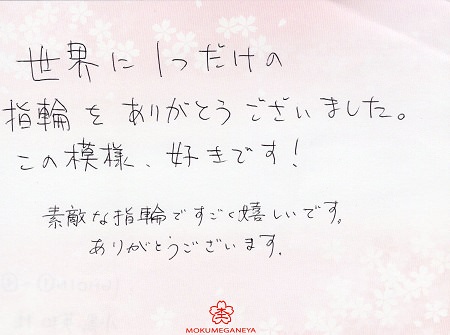 世界に1つだけの
指輪をありがとうございました。
この模様、好きです!
素敵な指輪ですごく嬉しいです。
ありがとうございます.
MOKUMEGANEYA